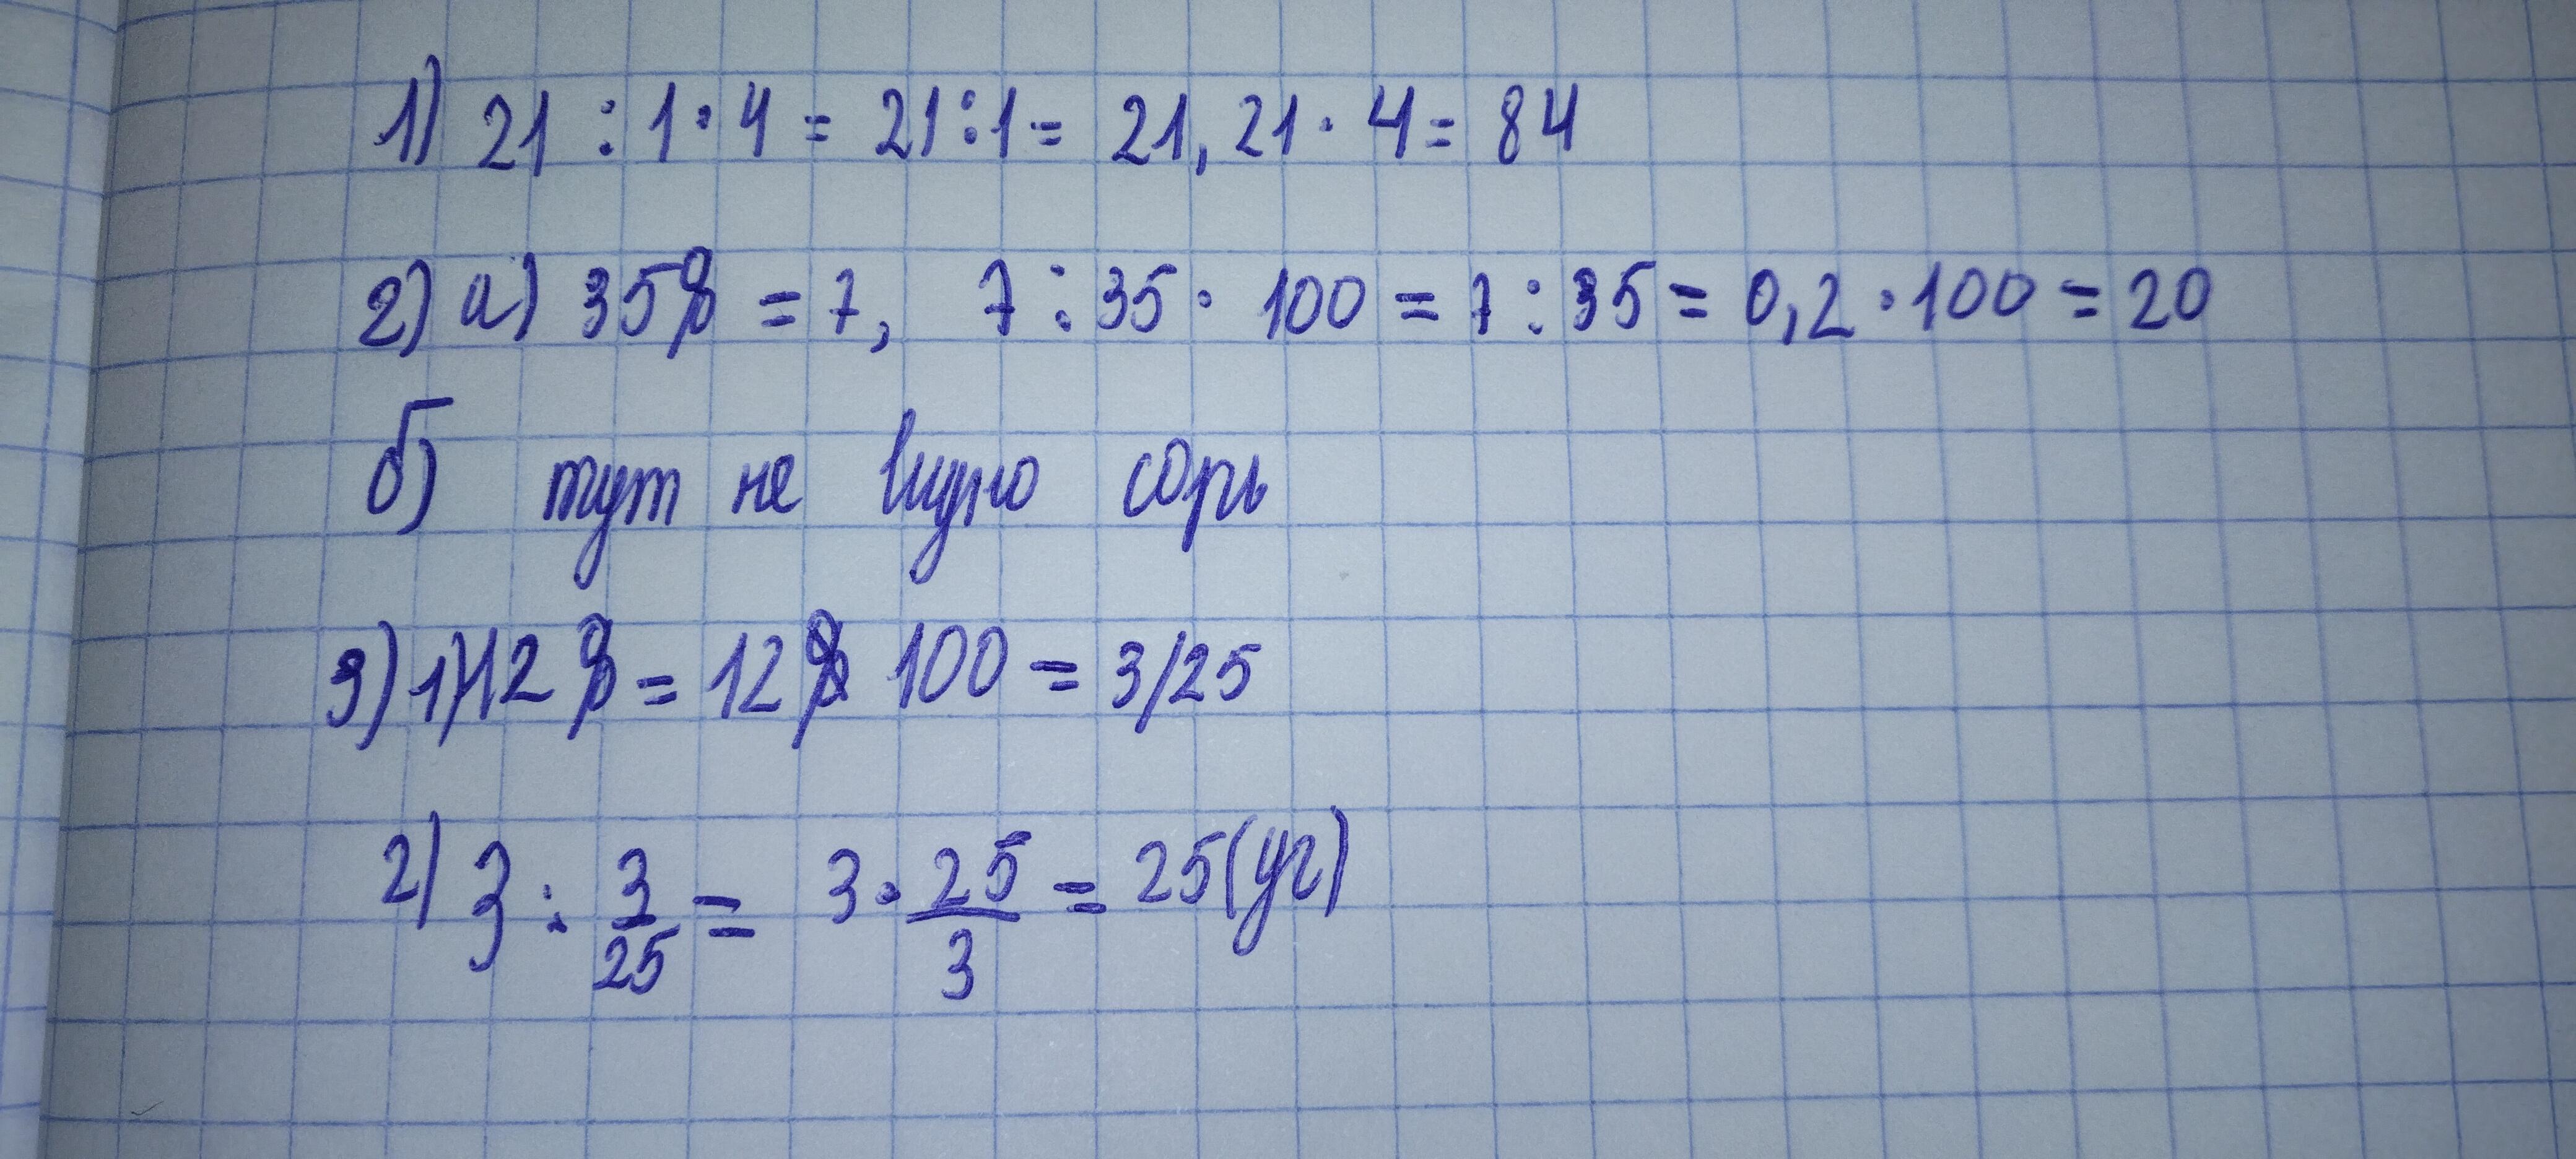 1) 21 : 1 · 4 = 21 : 1 = 21, 21 · 4 = 84
2) а) 35% = 7, 7 : 35 · 100 = 7 : 35 = 0,2 · 100 = 20
б) тут не видно сорь
3) 1) 12% = 12 100 = 3/25
2) 3 : 3/25 = 3 · 25/3 = 25 (уг)